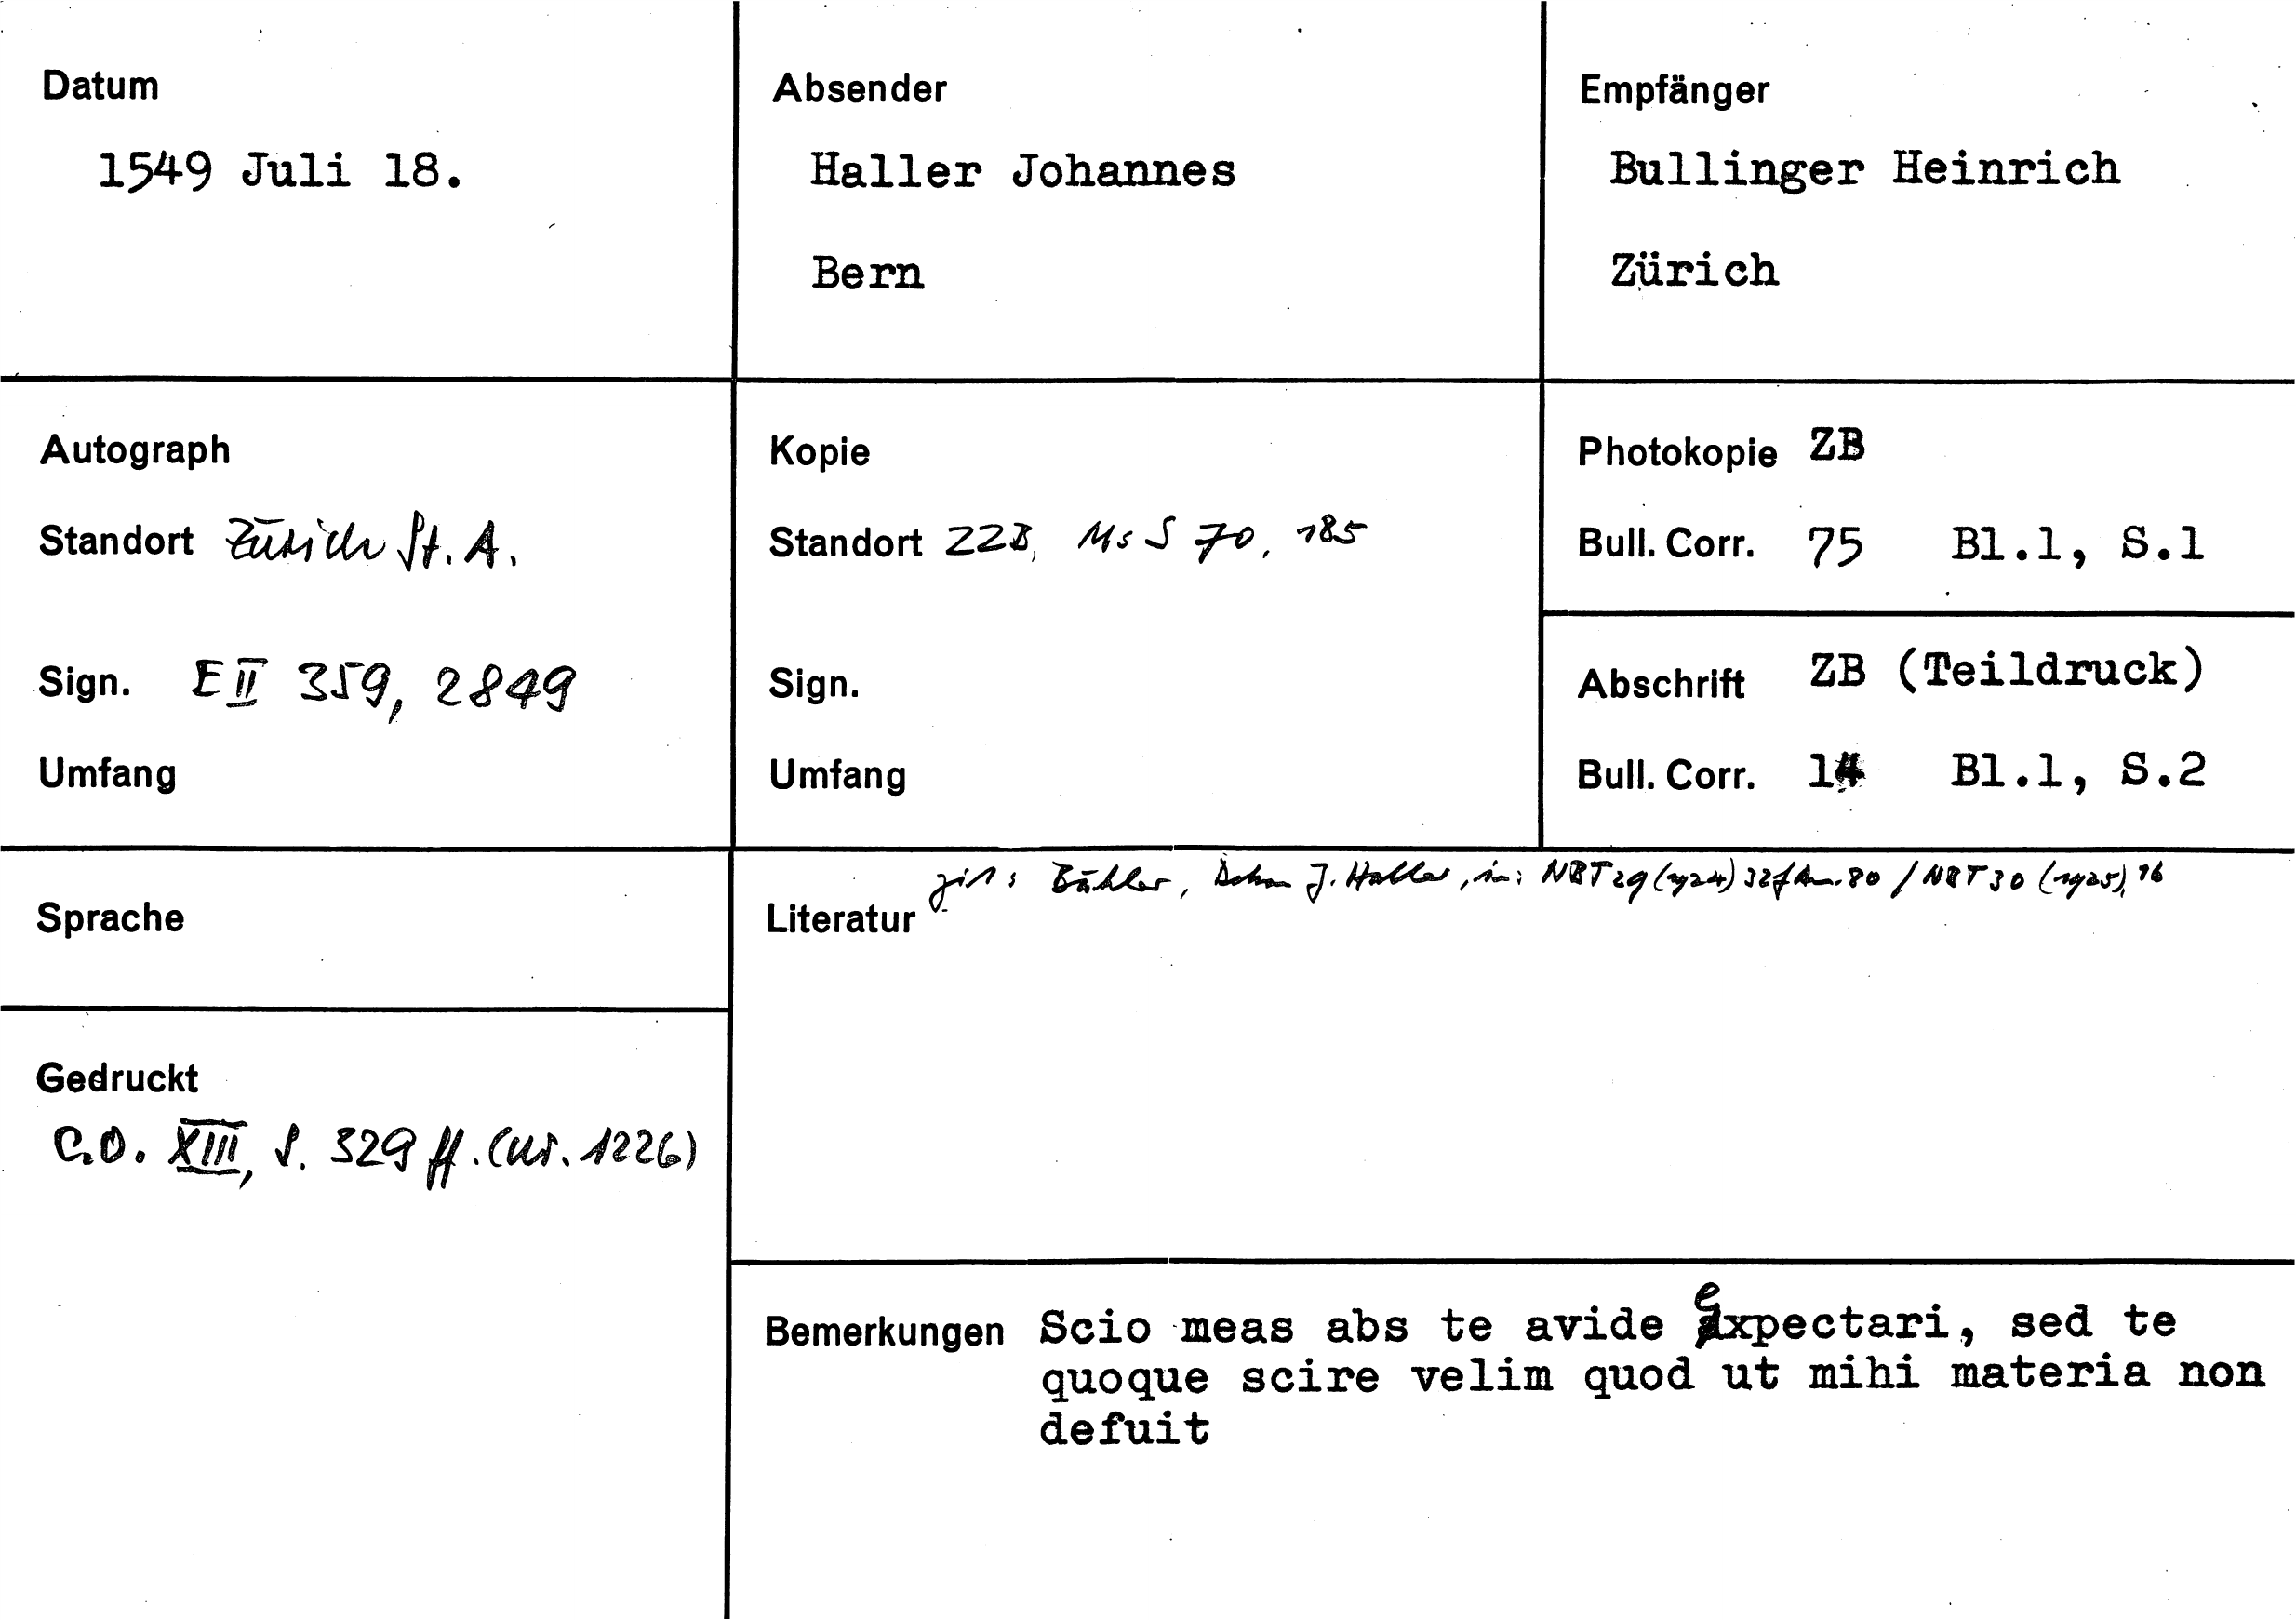 Datum
1549 Juli 18.
Absender
Haller Johannes
Bern
Empfänger
Bullinger Heinrich
Zürich
Autograph
Standort Zürich St. A.
Sign. E II 359, 2849
Umfang
Kopie
Standort ZZB, Ms S 70, 185
Sign.
Umfang
Photokopie ZB
Bull. Corr. 75 Bl.1, S.1
Abschrift ZB (Teildruck)
Bull. Corr. 14 Bl.1, S.2
Sprache
Gedruckt
C.O. XIII, S. 329 ff. (Nr. 1226)
Literatur
zit: Bähler, Dekan J. Haller, in: NBT 29 (1924) 32f Anm. 80 / NBT 30 (1925), 16
Bemerkungen Scio meas abs te avide expectari, sed te
quoque scire velim quod ut mihi materia non
defuit